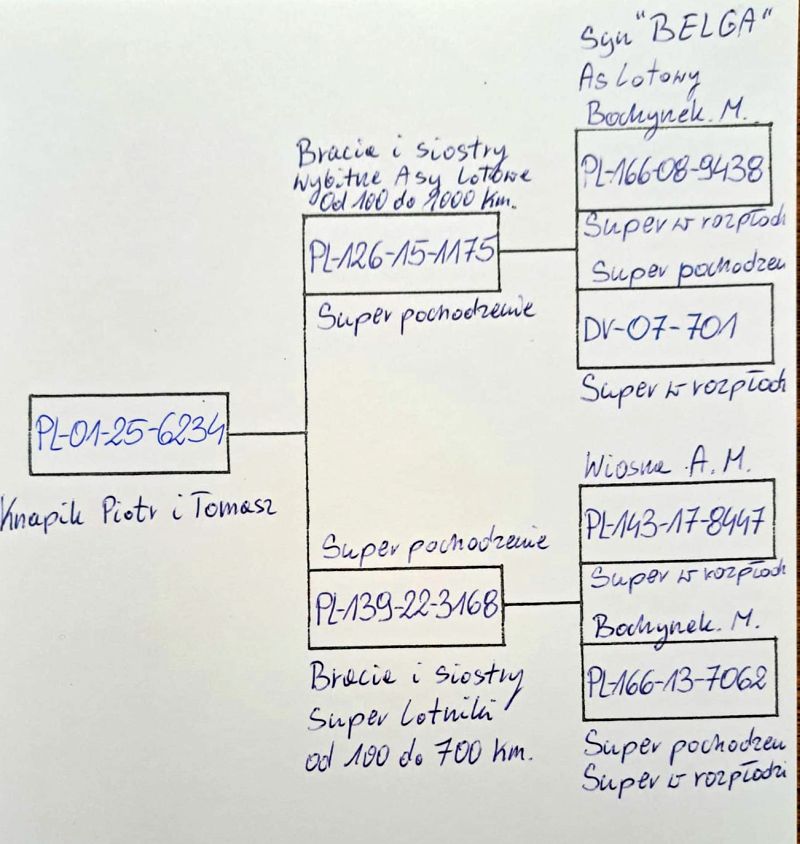 Syn "BELGA"
As Lotowy
Bochynek. M.
PL-166-08-9438
Super w rozpłodz
Super pochodzen
DV-07-701
Super w rozpłodz
Bracia i siostry
wybitne Asy Lotowe
Od 100 do 1000 km.
PL-126-15-1175
Super pochodzenie
PL-01-25-6234
Knapik Piotr i Tomasz
Super pochodzenie
PL-139-22-3168
Bracia i siostry
Super Lotniki
od 100 do 700 km.
Wiosna A. M.
PL-143-17-8447
Super w rozpłodz
Bochynek. M.
PL-166-13-7062
Super pochodzen
Super w rozpłodzi